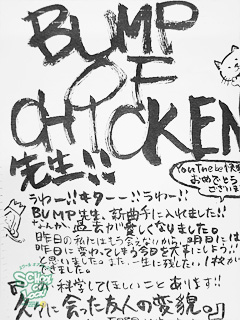 BUMP
OF
CHICKEN
先生!!
うわー!!キター!!うわー!!
BUMP先生、新曲手に入れました!!
なんか、過去が愛しくなりました。
昨日の私にはもう会えないから、明日には
昨日に変わってしまう今日を大事にしよう!!
と思いました。また、一生に残したい、1枚が
できました。
科学してほしいことあります!!
久々に会った友人の変貌。』
You Tube
おめでとう
ございま